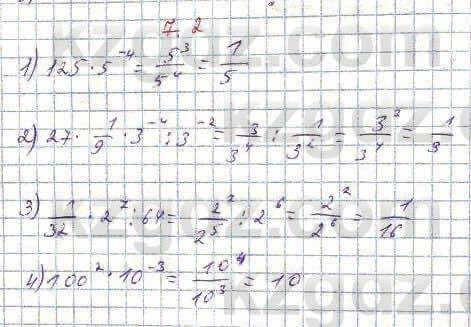 7. 2
1) 125 · 5⁻⁴ = 5³/5⁴ = 1/5
2) 27 · 1/9 · 3⁻⁴ : 3⁻² = 3/3⁴ : 1/3² = 3³/3⁴ = 1/3
3) 1/32 · 2⁷ : 64 = 2²/2⁵ : 2⁶ = 2²/2⁶ = 1/16
4) 100² · 10⁻³ = 10⁴/10³ = 10